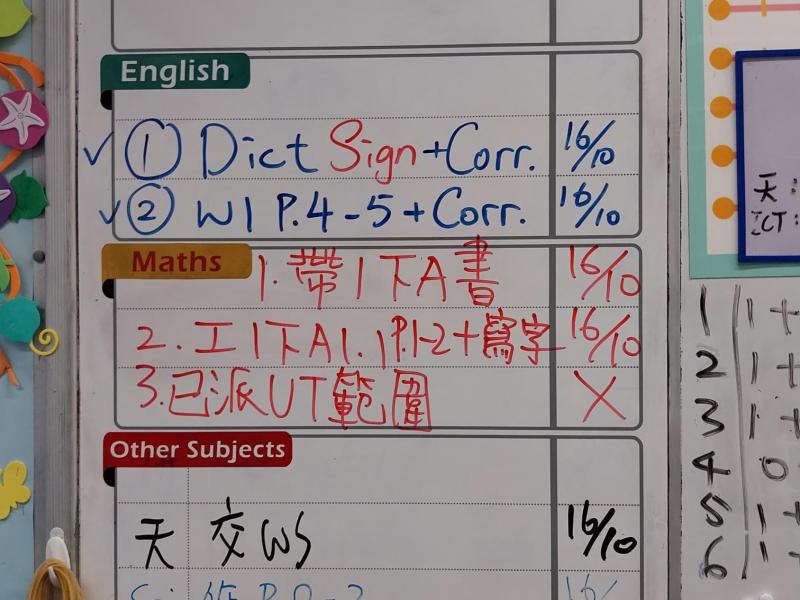 English
✓ ① Dict Sign+Corr. 16/10
✓ ② W1 P.4-5+Corr. 16/10
Maths
1. 帶1下A書 16/10
2. 工1下A1.1 P.1-2+寫字 16/10
3. 已派UT範圍 X
Other Subjects
天 交WS 16/10
天:
ICT:
1 1+
2 1+
3 1+
4 0
5 1+
6 1+